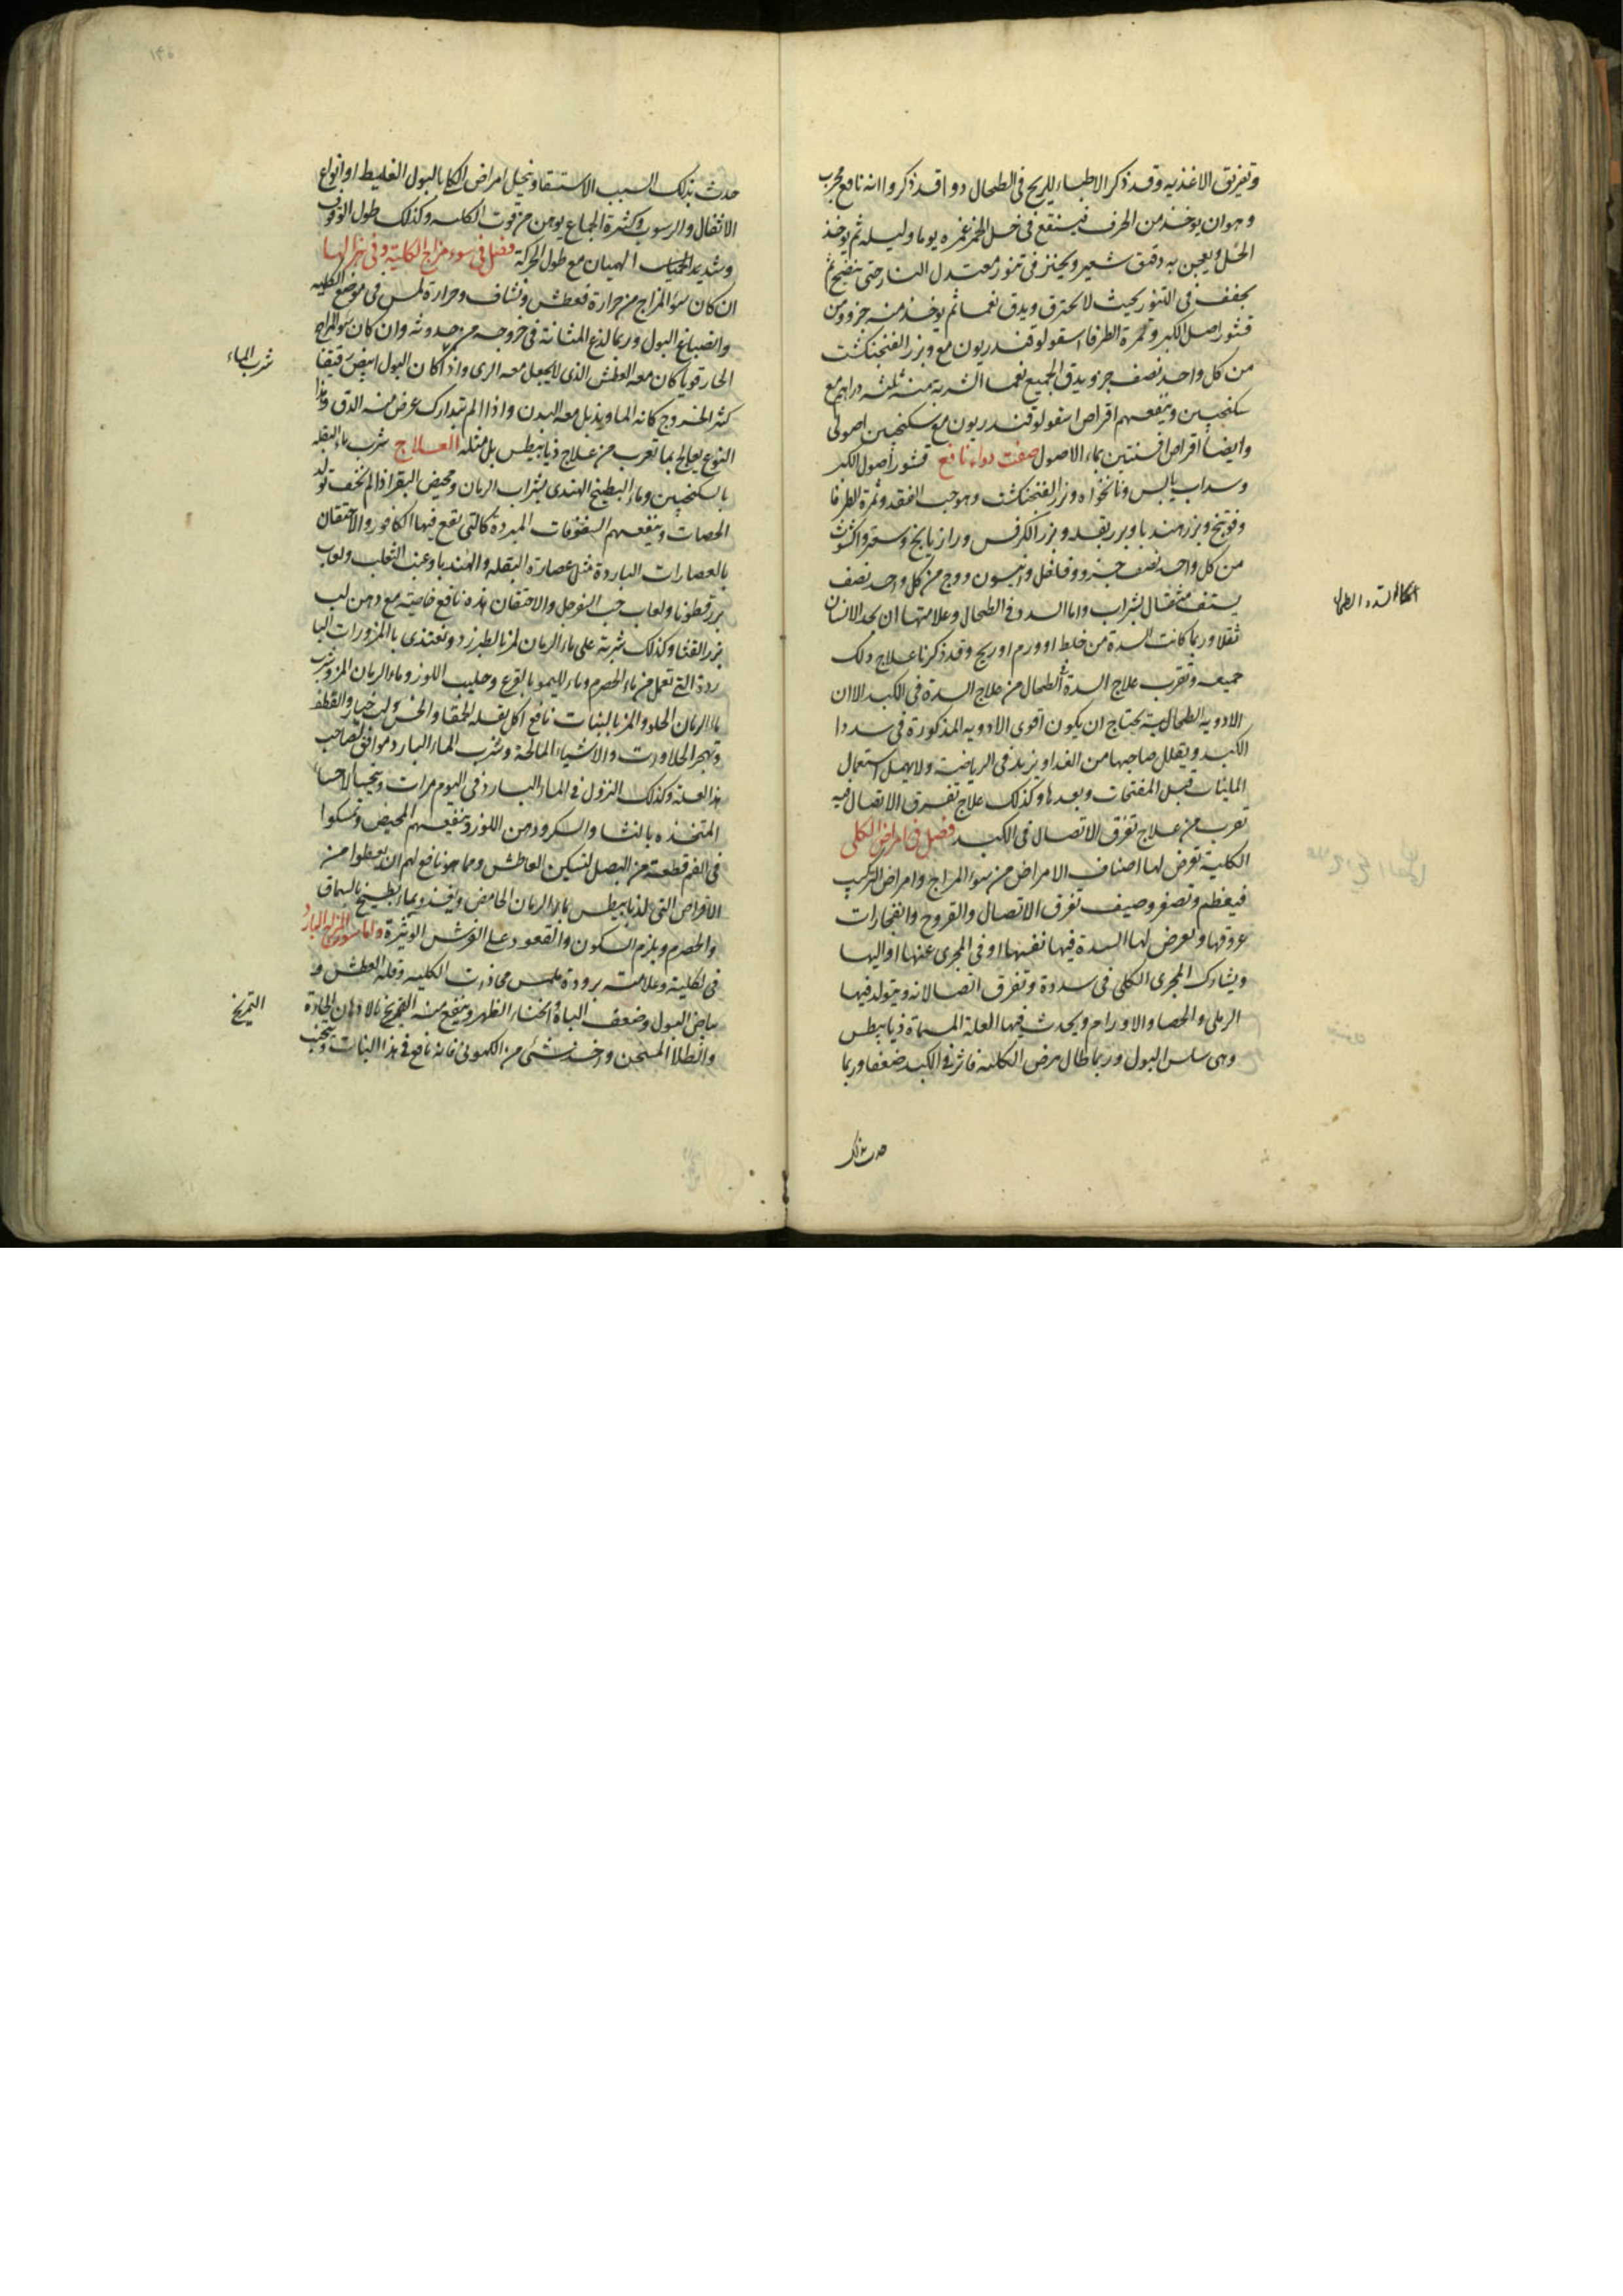 وتفريق الاغذيه وقد ذكر الاطباء للريح فى الطحال دوا قد ذكروا انه نافع مجرب
وهو ان يوخذ من الحرف فينقع فى خل الخمر غمره يوما وليله ثم يوخذ
الخل ويعجن به دقيق شعير ويخبز فى تنور معتدل النار حتى ينضج ثم
يجفف فى التنور بحيث لا يحترق ويدق نعما ثم يوخذ منه جزو ومن
قشور اصل الكبر وثمرة الطرفا اسقولوقندريون مع وبزر الفنجنكشت
من كل واحد نصف جزو يدق الجميع نعما الشربة منه ثلثه دراهم مع
سكنجبين وينفعهم اقراص اسقولوقندريون مع سكنجبين اصولى
وايضا اقراص افسنتين بماء الاصول صفت دواء نافع قشور اصول الكبر
وسداب يابس ونانخواه وبزر الفنجنكشت وهو حب الفقد وثمرة الطرفا
وفوتنج وبزر هندبا وبزر بقله وبزر الكرفس ورازيانج وسعتر واكشوث
من كل واحد نصف جزو وفلفل وانيسون ووج من كل واحد نصف
يستف مثقال بشراب واما السدد فى الطحال وعلامتها ان يجد الانسان
ثقلا وربما كانت السدة من خلط او ورم او ريح وقد ذكرنا علاج ذلك
جميعه وتقرب علاج السدة الطحال من علاج السدة فى الكبد الا ان
الادويه الطحالية يحتاج ان يكون اقوى الادويه المذكورة فى سدد
الكبد ويقلل صاحبها من الغدا ويزيد فى الرياضة ولا يهمل استعمال
الملينات قبل المفتحات وبعدها وكذلك علاج تفرق الاتصال فيه
تقرب من علاج تفرق الاتصال فى الكبد فصل فى امراض الكلى
الكلية تعرض لها اصناف الامراض من سوء المزاج وامراض التركيب
فيعظم وتصغر وصيف تفرق الاتصال والقروح وانفجارات
عروقها وتعرض لها السدة فيها نفسها او فى المجرى عنها او اليها
ويشارك المجرى الكلى فى سددة وتفرق اتصالاته ويتولد فيها
الرمل والحصا والاورام ويحدث فيها العلة المسماة ذيابيطس
وهى سلس البول وربما طال مرض الكليه فاثر فى الكبد ضعفا وربما
حدث بذلك
حدث بذلك السبب الاستسقا امراض الكلى بالبول الغليظ او انواع
الاثفال والرسوب وكثرة الجماع يوهن من قوت الكليه وكذلك طول الوقوف
وشد الهميان مع طول الحركة فصل فى سوء مزاج الكلية وفى هزالها
ان كان سؤ المزاج من حرارة فعطش ونشاف وحرارة لمس فى موضع الكليه
وانصباغ البول وربما لذع المثانة فى خروجه وان كان سؤ المزاج
الحار قويا كان معه العطش الذى لا يجعل معه الرى واذا كان البول ابيض رقيقا
كثر الخروج كانه الما ويذبل معه البدن واذا لم يتدارك عرض منه الدق وهذا
النوع يعالج بما تقرب من علاج ذيابيطس بل مثله العلاج شرب ماء البقله
بالسكنجبين وماء البطيخ الهندى بشراب الرمان ومخيض البقر اذا لم يخف تولد
الحصات وينفعهم السفوفات المبردة كالتى يقع فيها الكافور والاحتقان
بالعصارات الباردة مثل عصارة البقله والهندبا وعنب الثعلب ولعاب
بزر قطونا ولعاب حب السفرجل والاحتقان هذه نافع خاصيته مع دهن لب
بزر القثا وكذلك شربه على ماء الرمان لمز الطبرزد وتغتذى بالمزورات البا
ردة التى تعمل من ماء الحصرم وماء الليمو بالقرع وحليب اللوز وماء الرمان المز وشرب
ماء الرمان الحلو والمز بالنبات نافع اكل بقله الحمقا والخس ولب خيار والقطف
وتهجر الحلاوات والاشياء المالحة وشرب الماء البارد موافق لصاحب
هذا العلة وكذلك النزول فى الماء البارد فى اليوم مرات الاحسا
المتخذه بالنشا والسكر ودهن اللوز وينفعهم المخيض وتمسكوا
فى الفم قطعة من البصل لتسكين العطش ومما هو نافع لهم ان يعطوا من
الاقراص التى لذيابيطس بماء الرمان الحامض بالسماق
والحصرم ويلزم السكون والقعود على الفرش الوثيرة واما سوء المزاج البارد
فى الكلية وعلامته برودة ملمس محاذات الكليه وقله العطش و
بياض البول وضعف الباة وانحناء الظهر وينفع منه التمريخ بالادهان الحادة
والطلا المسخن واخذ شئ من الكمونى فانه نافع فى هذا الباب ويتجنب
شرب الماء
التمريخ